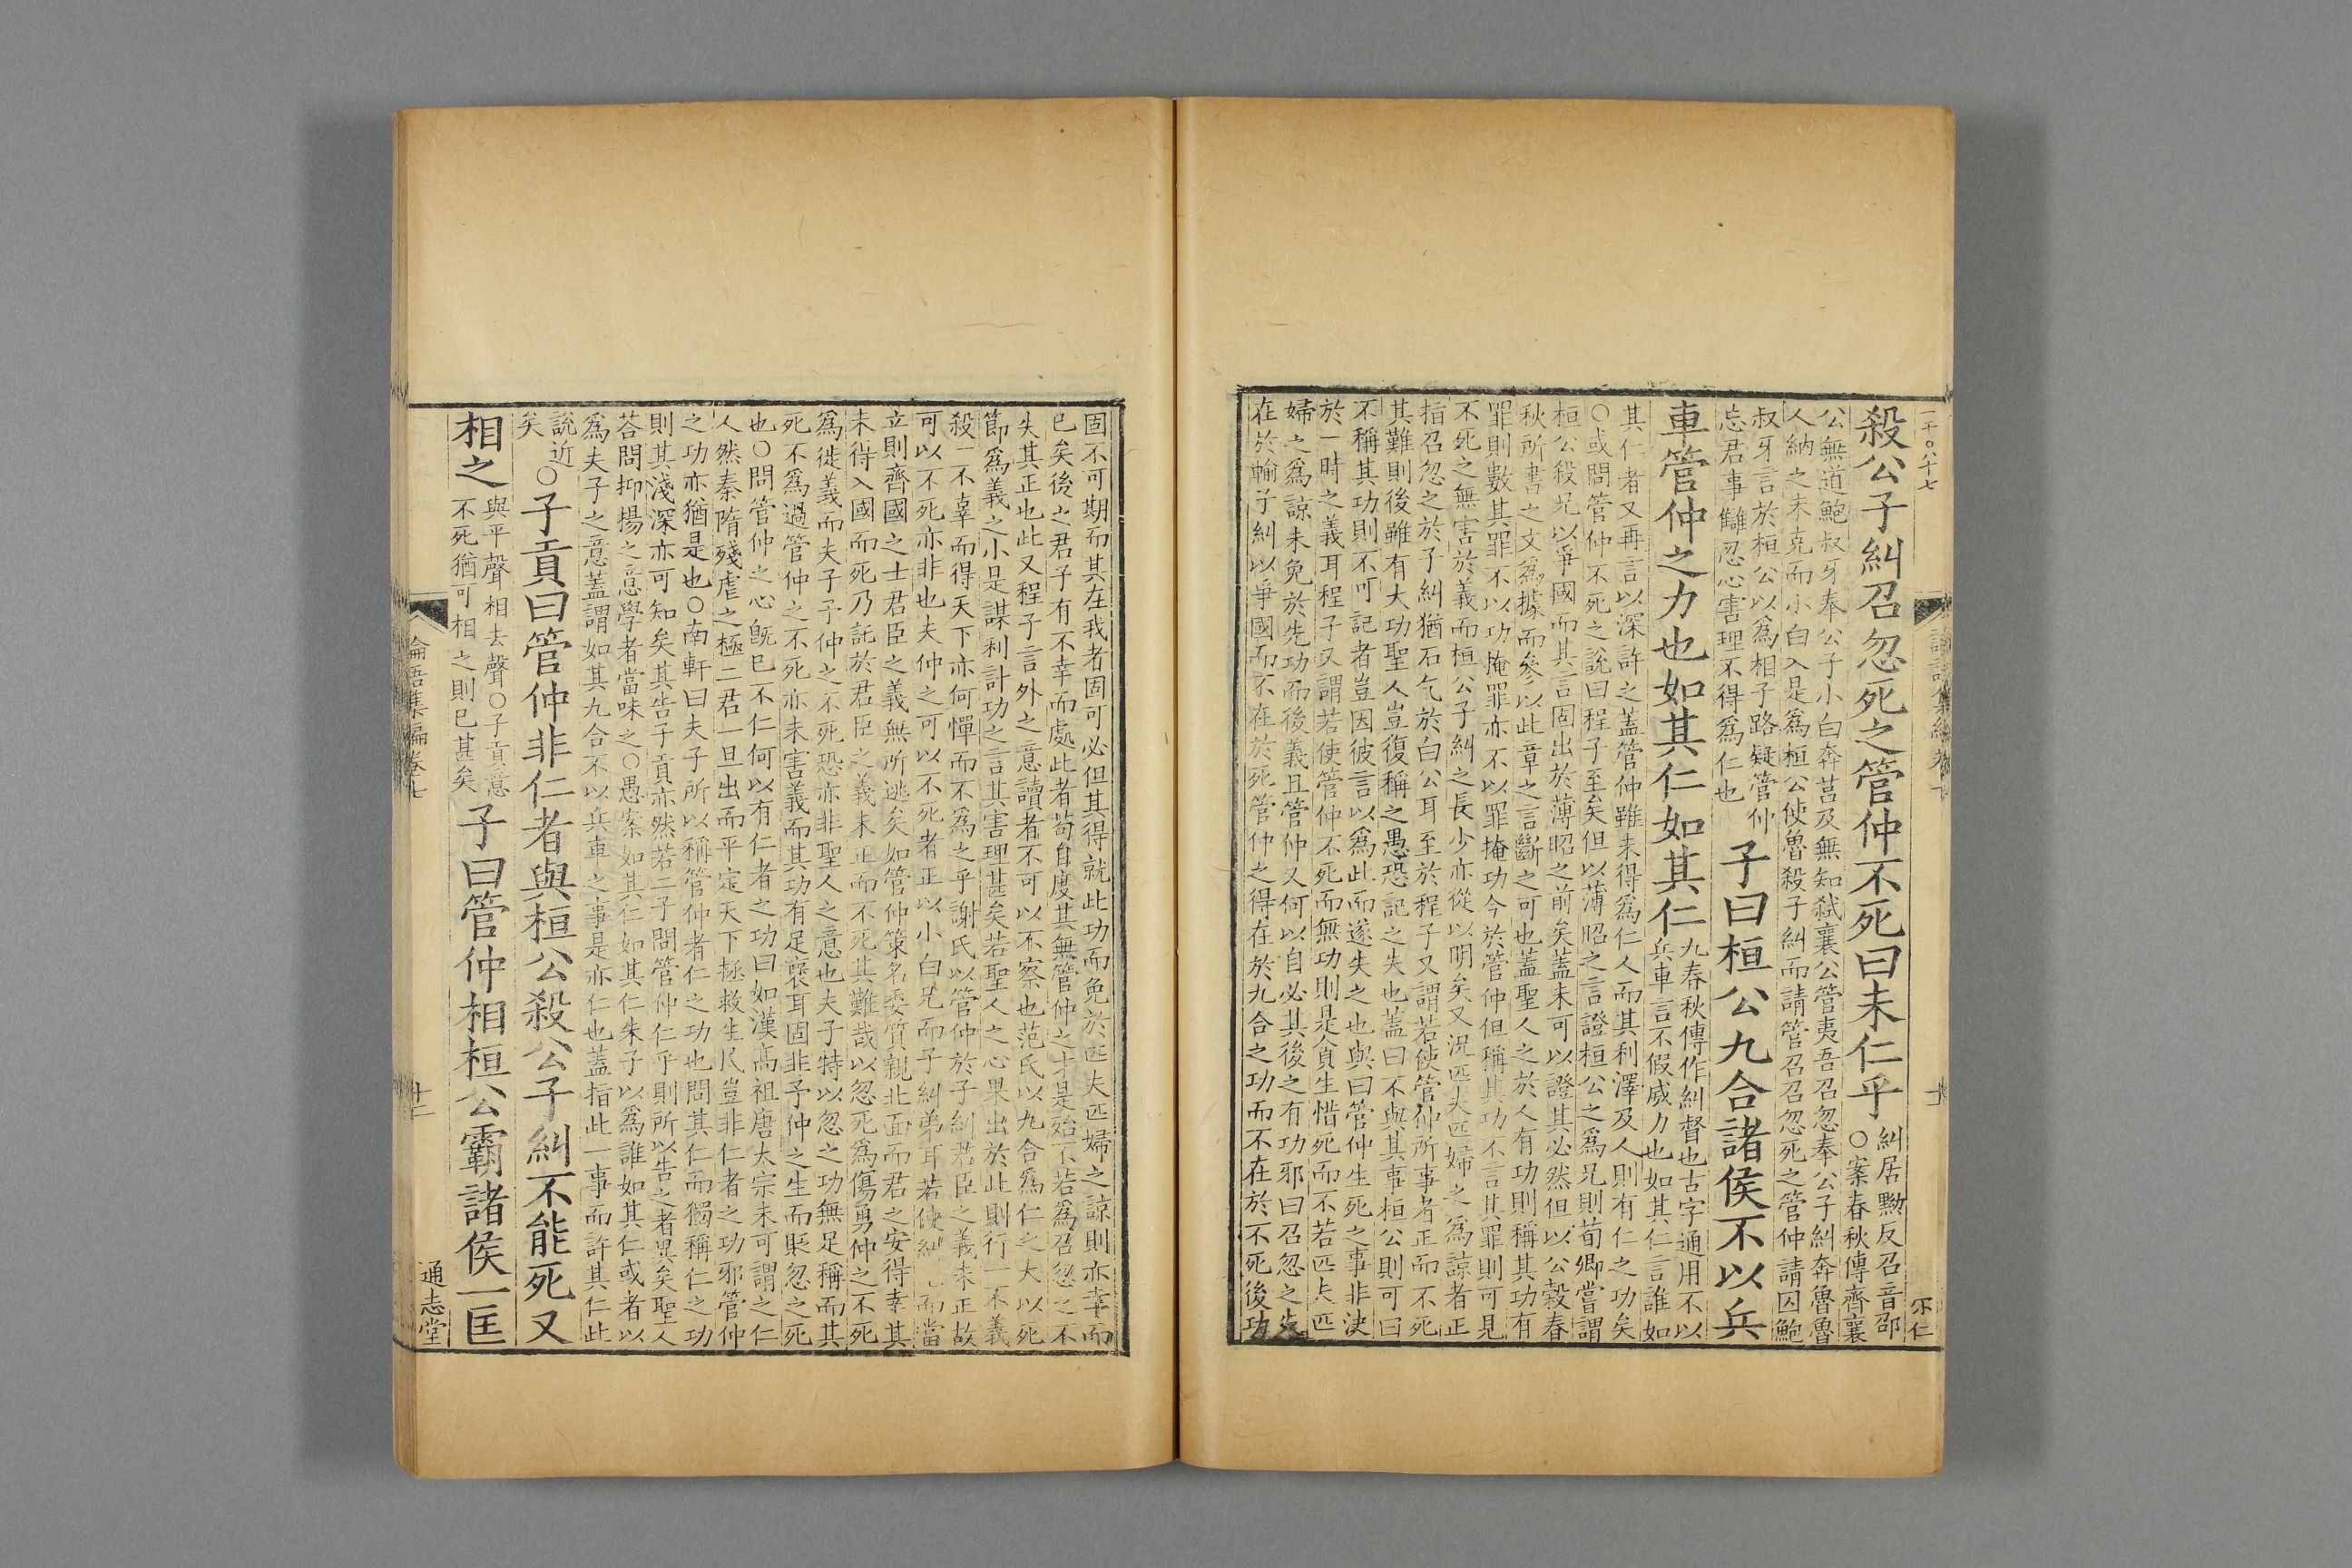 一千〇八十七
殺公子糾召忽死之管仲不死曰未仁乎
糾居黝反召音邵
○案春秋傳齊襄
公無道鮑叔牙奉公子小白奔莒及無知弑襄公管夷吾召忽奉公子糾奔魯魯
人納之未克而小白入是爲桓公使魯殺子糾而請管召召忽死之管仲請囚鮑
叔牙言於桓公以爲相子路疑管仲
忘君事讎忍心害理不得爲仁也
子曰桓公九合諸侯不以兵
車管仲之力也如其仁如其仁
九春秋傳作糾督也古字通用不以
兵車言不假威力也如其仁言誰如
其仁者又再言以深許之蓋管仲雖未得爲仁人而其利澤及人則有仁之功矣
○或問管仲不死之說曰程子至矣但以薄昭之言證桓公之爲兄則荀卿嘗謂
桓公殺兄以爭國而其言固出於薄昭之前矣蓋未可以證其必然但以公穀春
秋所書之文爲據而參以此章之言斷之可也蓋聖人之於人有功則稱其功有
罪則數其罪不以功掩罪亦不以罪掩功今於管仲但稱其功不言其罪則可見
不死之無害於義而桓公子糾之長少亦從以明矣又況匹夫匹婦之爲諒者正
指召忽之於子糾猶石乞於白公耳至於程子又謂若使管仲所事者正而不死
其難則後雖有大功聖人豈復稱之愚恐記之失也蓋曰不與其事桓公則可曰
不稱其功則不可記者豈因彼言以爲此而遂失之也與曰管仲生死之事非決
於一時之義耳程子又謂若使管仲不死而無功則是貪生惜死而不若匹夫匹
婦之爲諒未免於先功而後義且管仲又何以自必其後之有功邪曰召忽之失
在於輔子糾以爭國而不在於死管仲之得在於九合之功而不在於不死後功
固不可期而其在我者固可必但其得就此功而免於匹夫匹婦之諒則亦幸而
已矣後之君子有不幸而處此者苟自度其無管仲之才是殆不若爲召忽之不
失其正也此又程子言外之意讀者不可以不察也范氏以九合爲仁之大以死
節爲義之小是謀利計功之言其害理甚矣若聖人之心果出於此則行一不義
殺一不辜而得天下亦何憚而不爲之乎謝氏以管仲於子糾君臣之義未正故
可以不死亦非也夫仲之可以不死者正以小白兄而子糾弟耳若使糾兄而當
立則齊國之士君臣之義無所逃矣如管仲策名委質親北面而君之安得幸其
未得入國而死乃託於君臣之義未正而不死其難哉以忽死爲傷勇仲之不死
爲徙義而夫子予仲之不死恐亦非聖人之意也夫子特以忽之功無足稱而其
死不爲過管仲之不死亦未害義而其功有足襃耳固非予仲之生而貶忽之死
也○問管仲之心旣已不仁何以有仁者之功曰如漢高祖唐太宗未可謂之仁
人然秦隋殘虐之極二君一旦出而平定天下拯救生民豈非仁者之功邪管仲
之功亦猶是也○南軒曰夫子所以稱管仲者仁之功也問其仁而獨稱仁之功
則其淺深亦可知矣其告子貢亦然若二子問管仲仁乎則所以告之者異矣聖人
荅問抑揚之意學者當味之○愚案如其仁如其仁朱子以爲誰如其仁或者以
爲夫子之意蓋謂如其九合不以兵車之事是亦仁也蓋指此一事而許其仁此
說近
矣
○子貢曰管仲非仁者與桓公殺公子糾不能死又
相之
與平聲相去聲○子貢意
不死猶可相之則已甚矣
子曰管仲相桓公霸諸侯一匡
論語集編卷七
十二
通志堂